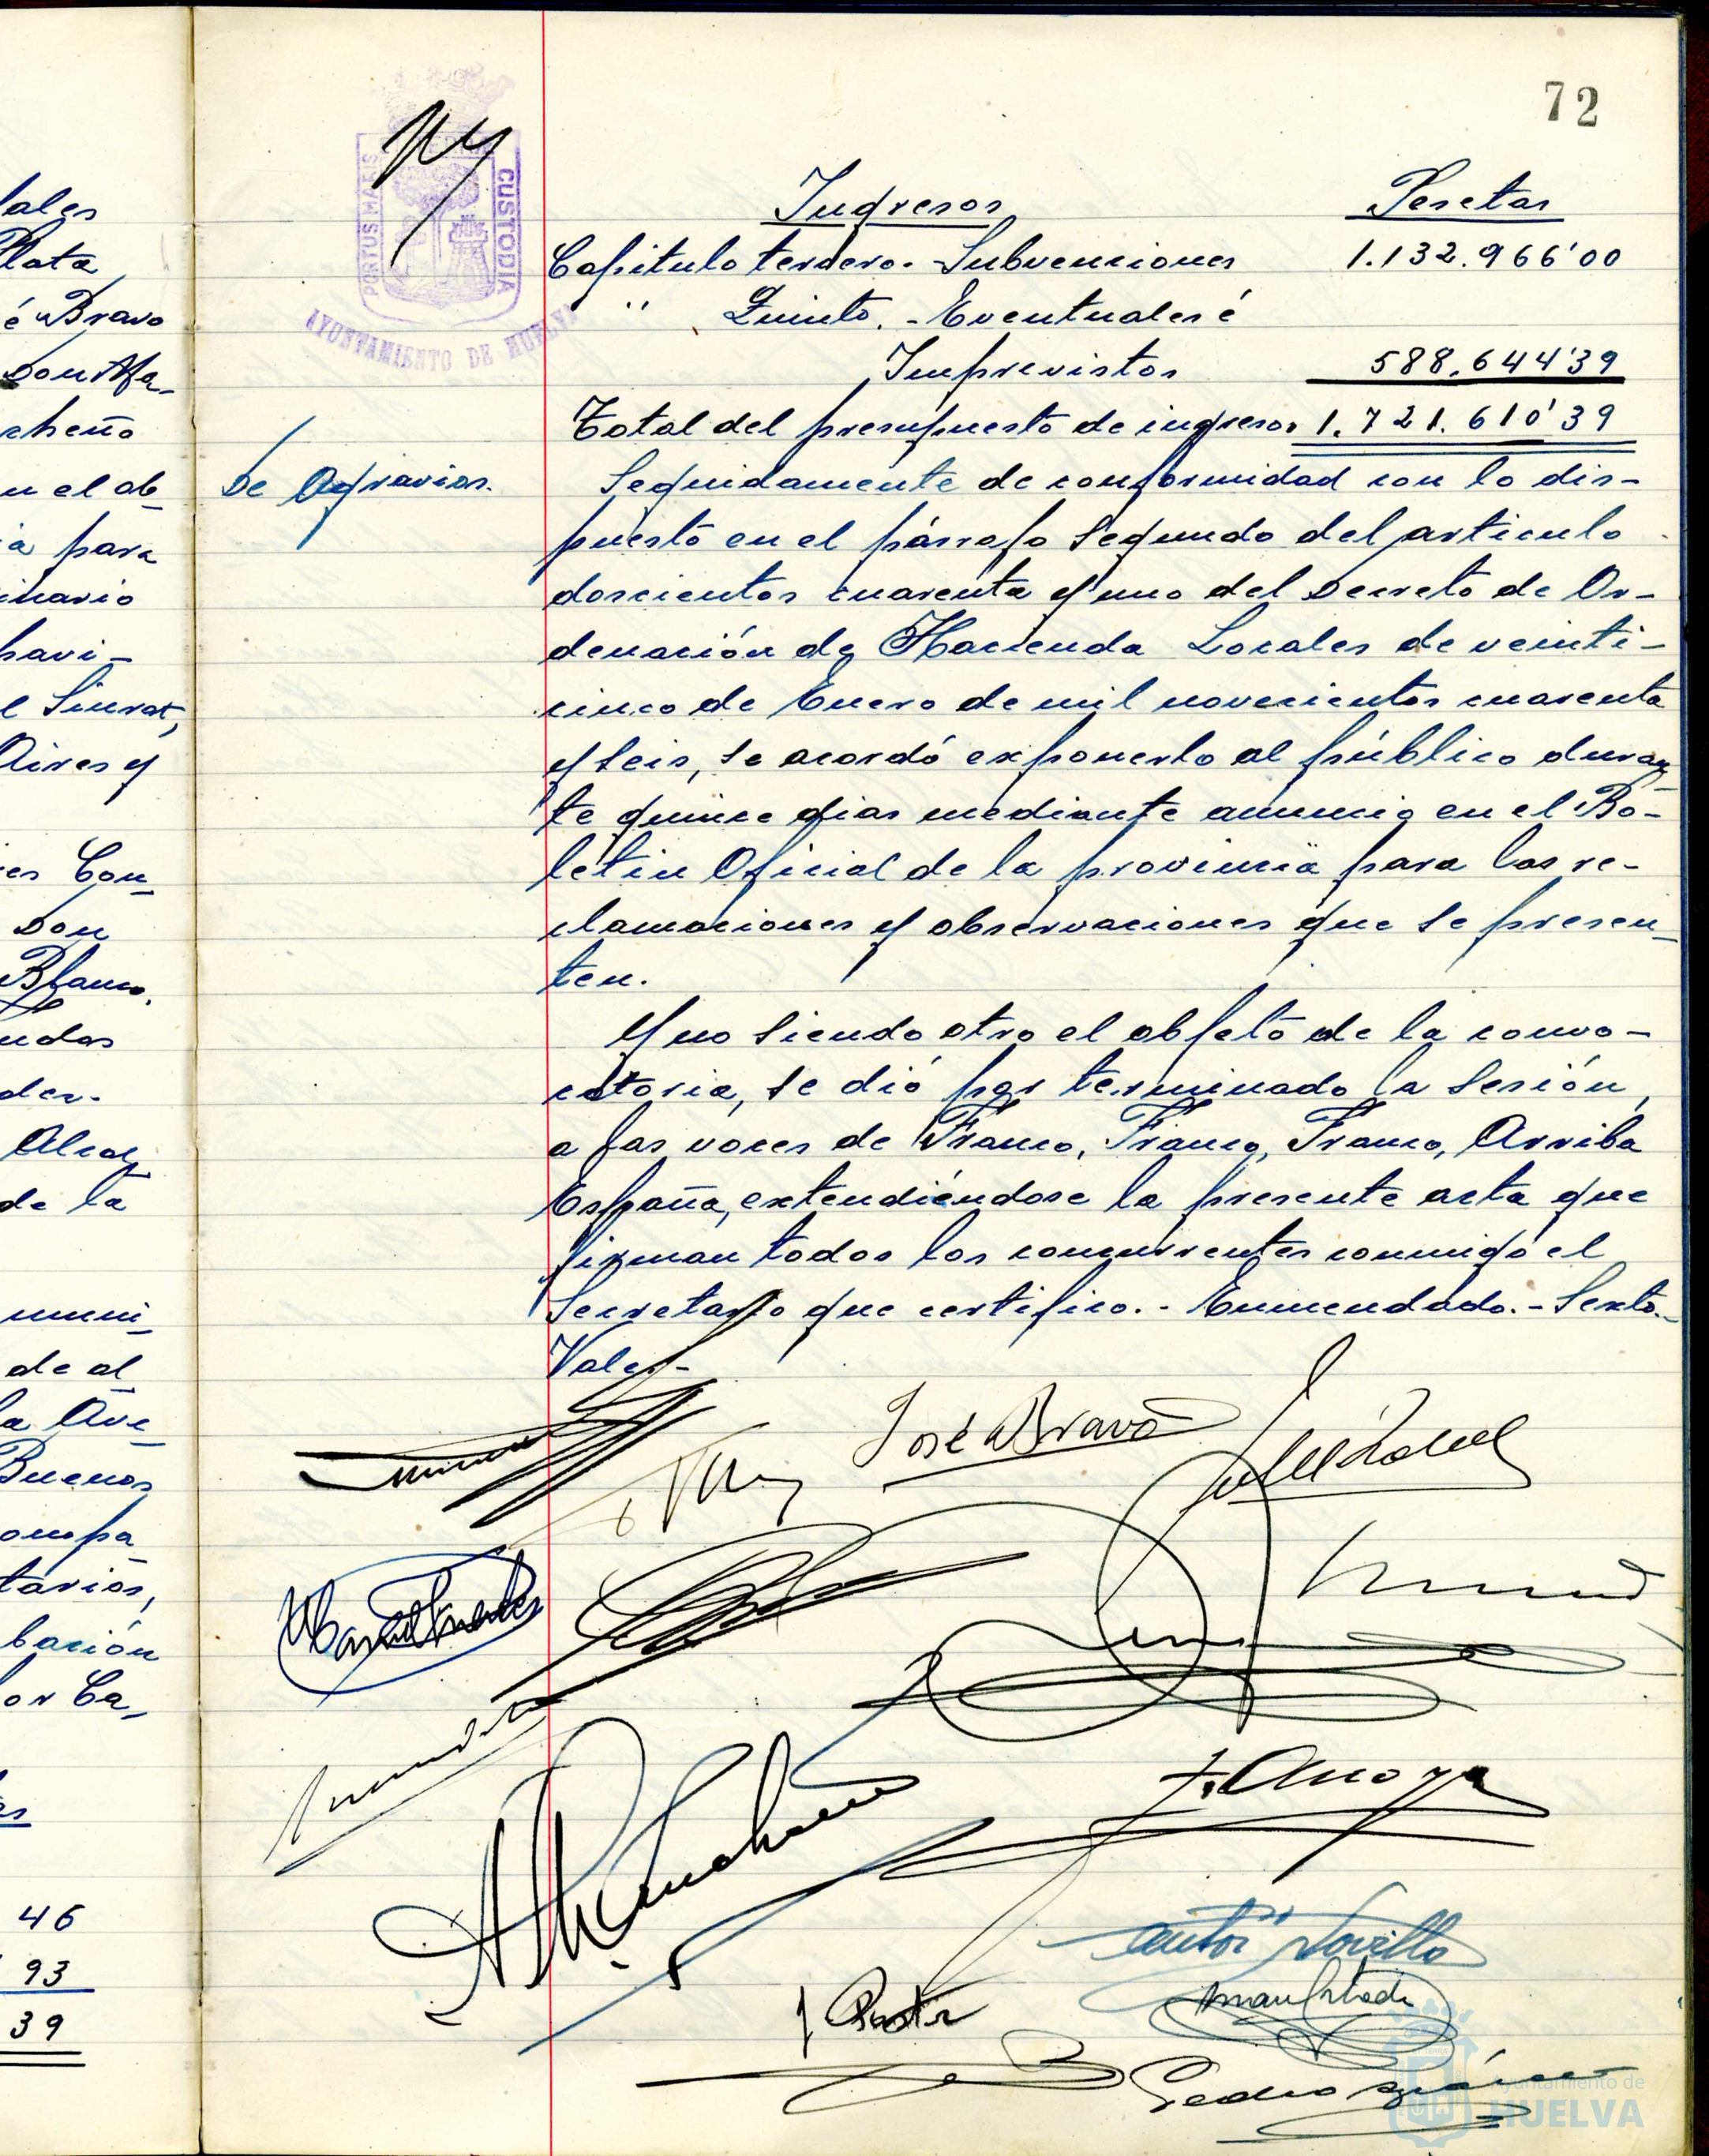 72
PORTUS MARIS
CUSTODIA
AYUNTAMIENTO DE HUELVA
Ingresos Pesetas
Capitulo tercero.- Subvenciones 1.132.966'00
" Quinto.- Eventuales é
Imprevistos 588.644'39
Total del presupuesto de ingresos 1.721.610'39
De Agravios.
Seguidamente de conformidad con lo dis-
puesto en el párrafo segundo del articulo
doscientos cuarenta y uno del Decreto de Or-
denación de Hacienda Locales de veinti-
cinco de Enero de mil novecientos cuarenta
y seis, se acordó exponerlo al público duran
te quince dias mediante anuncio en el Bo-
letin Oficial de la provincia para las re-
clamaciones y observaciones que se presen-
ten.
Y no siendo otro el objeto de la convo-
catoria, se dió por terminado la sesión,
a las voces de Franco, Franco, Franco, Arriba
España, extendiéndose la presente acta que
firman todos los concurrentes conmigo el
Secretario que certifico.- Enmendado.- Sexto.-
Vale.-
José Bravo
Pedro
Ayuntamiento de
HUELVA
lales
Plata
é Bravo
Don Ma-
cheño
n el ob
a para
inario
havi-
e Siurot,
Aires y
es Con-
Don
Blanco.
ndos
der.
Alcal
de la
muni-
de al
a Ave
Buenos
ompa
tarios,
bación
or Ca-
46
93
39